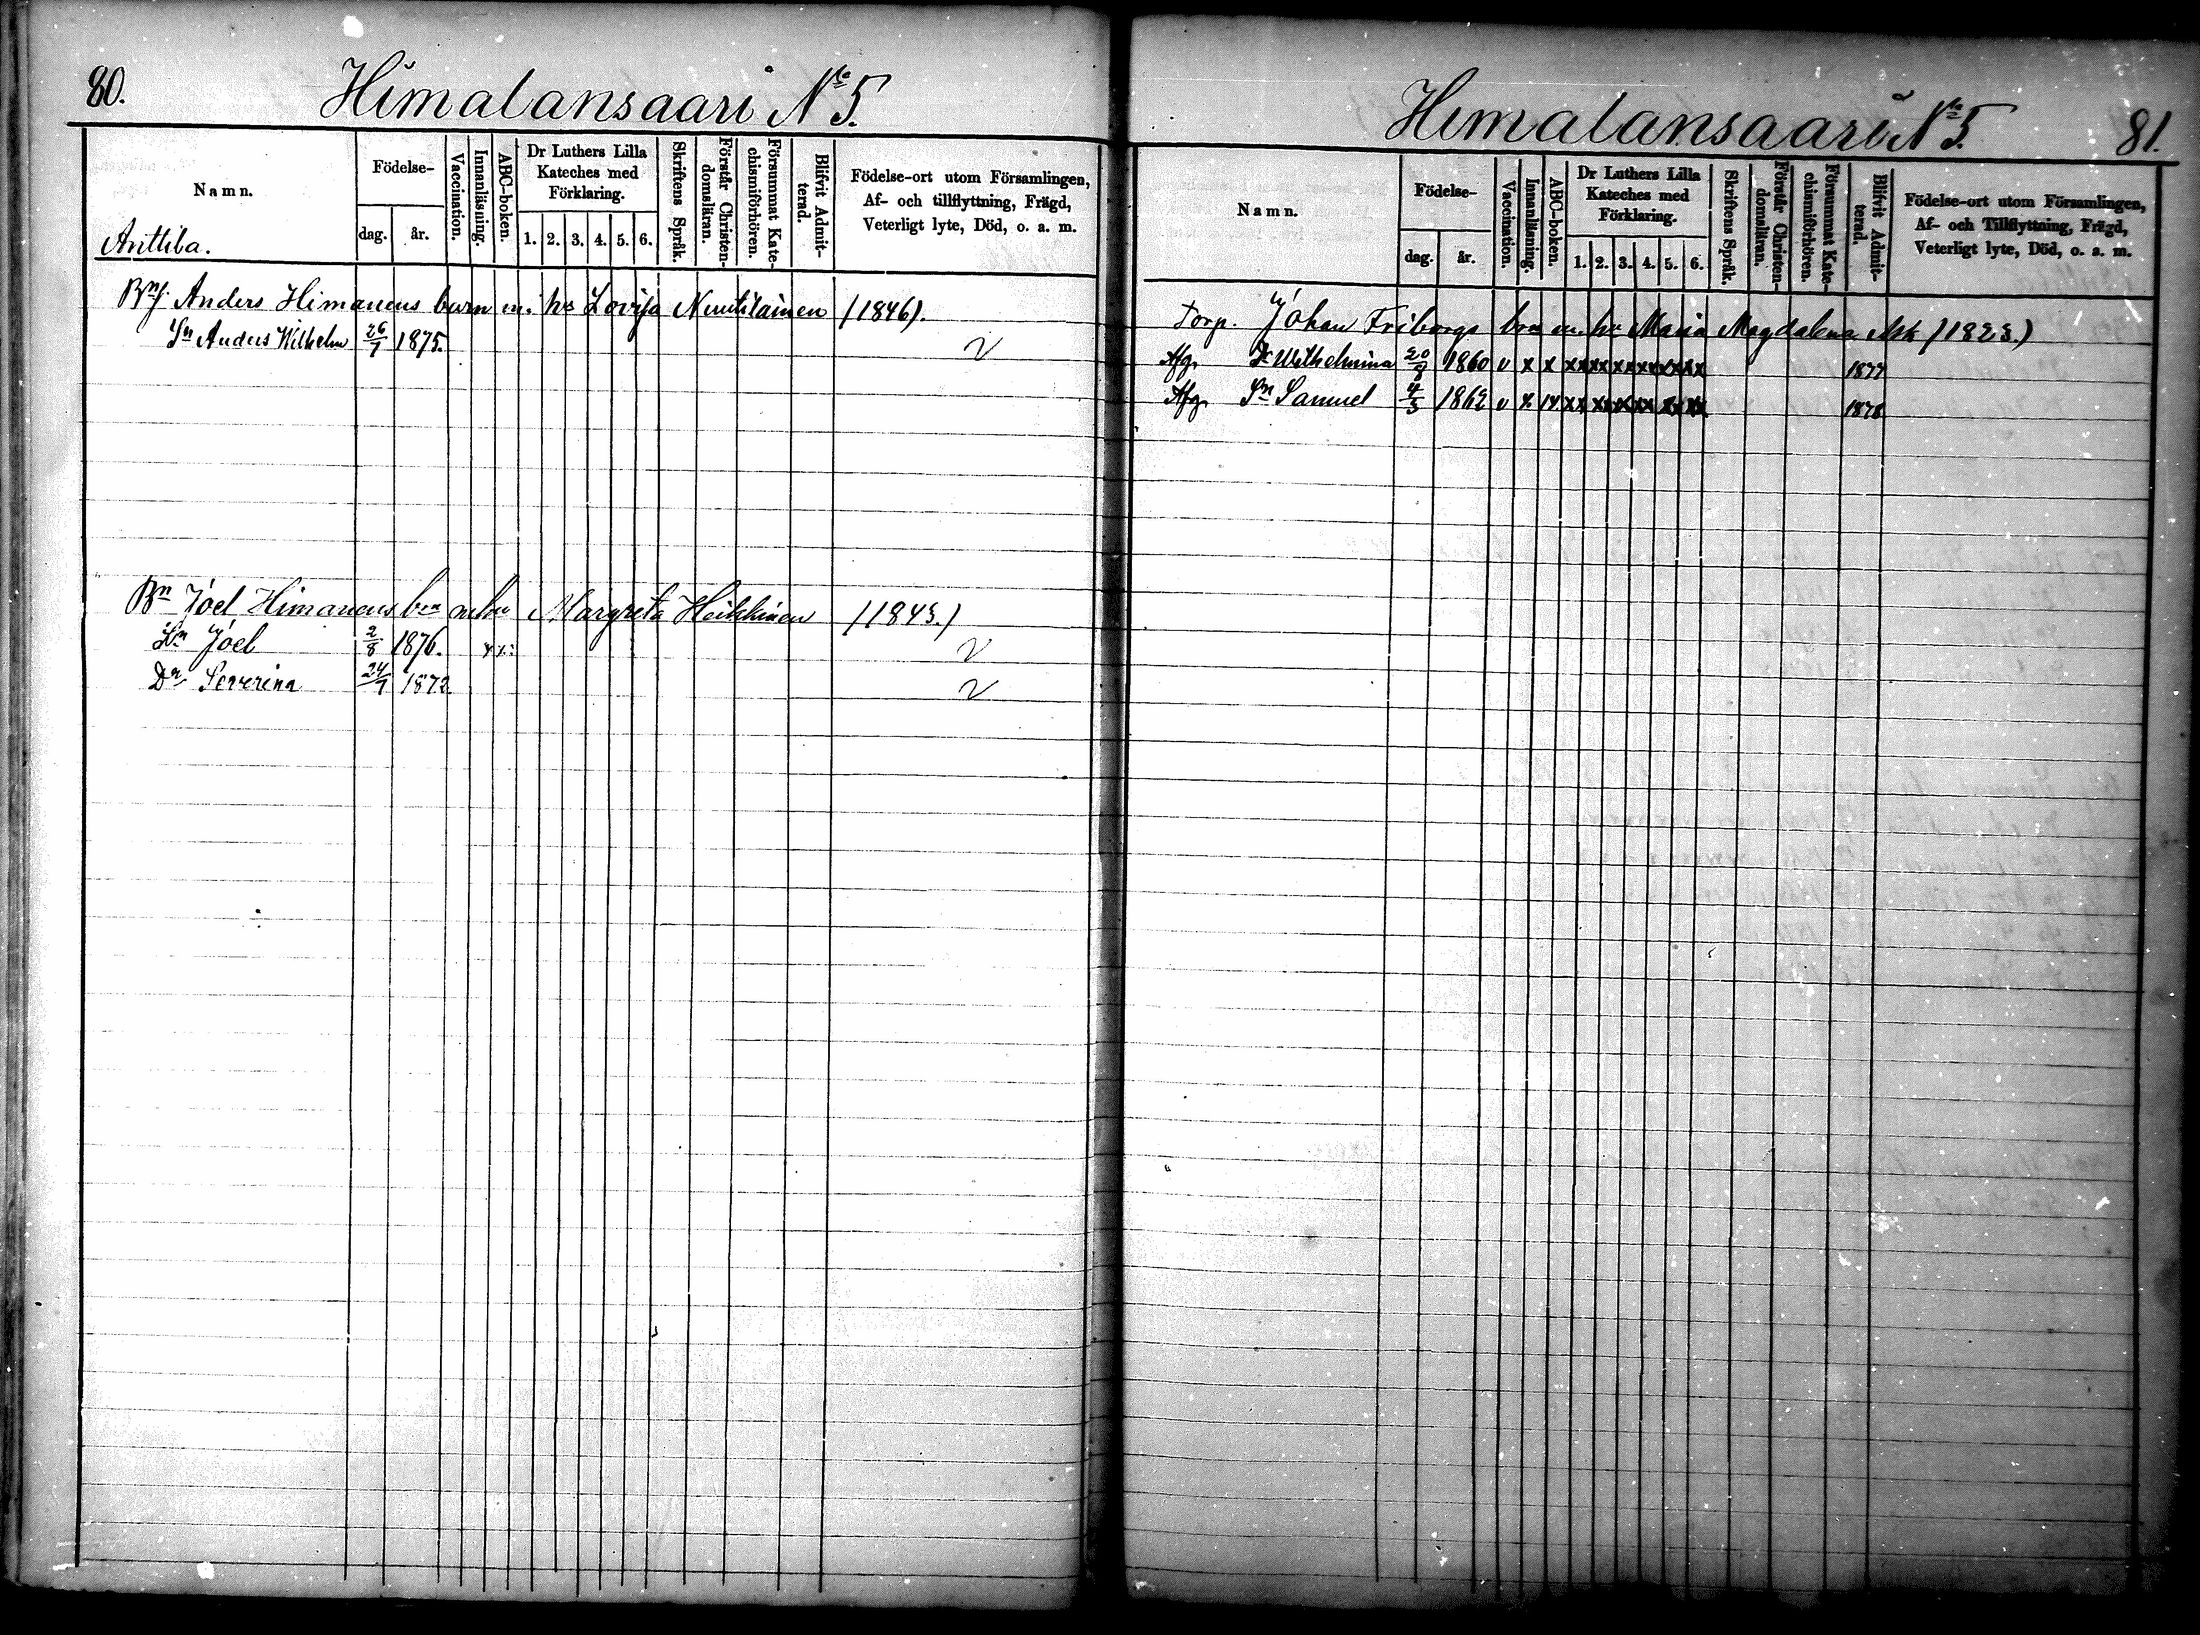 80.
Himalansaari No 5.
Namn.
Födelse-
dag.
år.
Vaccination.
Innanläsning.
ABC-boken.
Dr Luthers Lilla
Kateches med
Förklaring.
1. 2. 3. 4. 5. 6.
Skriftens Språk.
Förstår Christen-
domsläran.
Försummat Kate-
chismiförhören.
Blifvit Admit-
terad.
Födelse-ort utom Församlingen,
Af- och tillflyttning, Frägd,
Veterligt lyte, Död, o. a. m.
Anttila.
Anders Himanens barn m. hu Lovisa Nuutilainen (1846).
Sn Anders Wilhelm 26/7 1875. v
Bn Joel Himanens brn m hu Margreta Heikkinen (1843.)
Sn Joel 2/8 1876. v
Dr Severina 24/7 1872 v
Himalansaari No 5.
81.
Namn.
Födelse-
dag.
år.
Vaccination.
Innanläsning.
ABC-boken.
Dr Luthers Lilla
Kateches med
Förklaring.
1. 2. 3. 4. 5. 6.
Skriftens Språk.
Förstår Christen-
domsläran.
Försummat Kate-
chismiförhören.
Blifvit Admit-
terad.
Födelse-ort utom Församlingen,
Af- och Tillflyttning, Frägd,
Veterligt lyte, Död, o. a. m.
Torp. Johan Fribergs brn m hu Maria Magdalena Ask (1823.)
Afg. Wilhelmina 20/8 1860 v x x xx xx xx xx xx xx 1877
Afg. Sn Samuel 4/3 1862 v x xx xx xx xx xx xx 1878